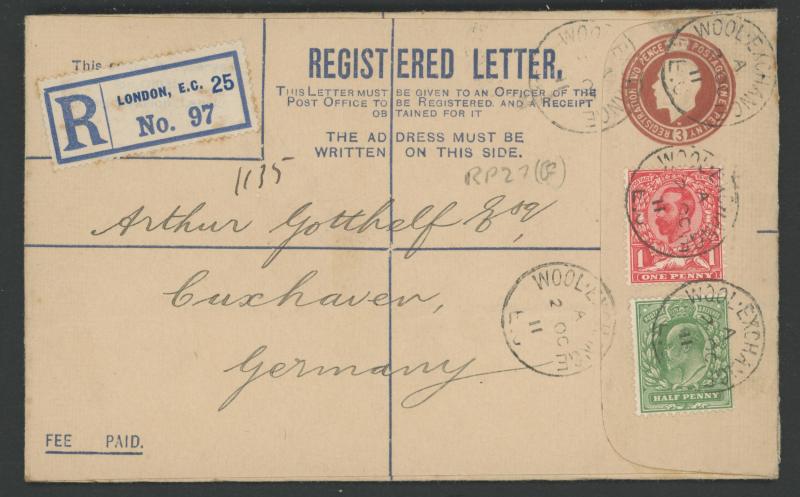 This
REGISTERED LETTER.
THIS LETTER MUST BE GIVEN TO AN OFFICER OF THE
POST OFFICE TO BE REGISTERED, AND A RECEIPT
OBTAINED FOR IT
THE ADDRESS MUST BE
WRITTEN ON THIS SIDE.
R
LONDON, E.C. 25
No. 97
REGISTRATION TWO PENCE POSTAGE ONE PENNY
3
WOOL-EXCHANGE
WOOL-EXCHANGE
1135
RP27(G)
Arthur Gotthelf Esq
Cuxhaven,
Germany
1 1
ONE PENNY
WOOL-EXCHANGE
A
2 OC
11
E.C.
WOOL-EXCHANGE
A
2 OC
11
E.C.
WOOL-EXCHANGE
A
11
HALF PENNY
FEE PAID.